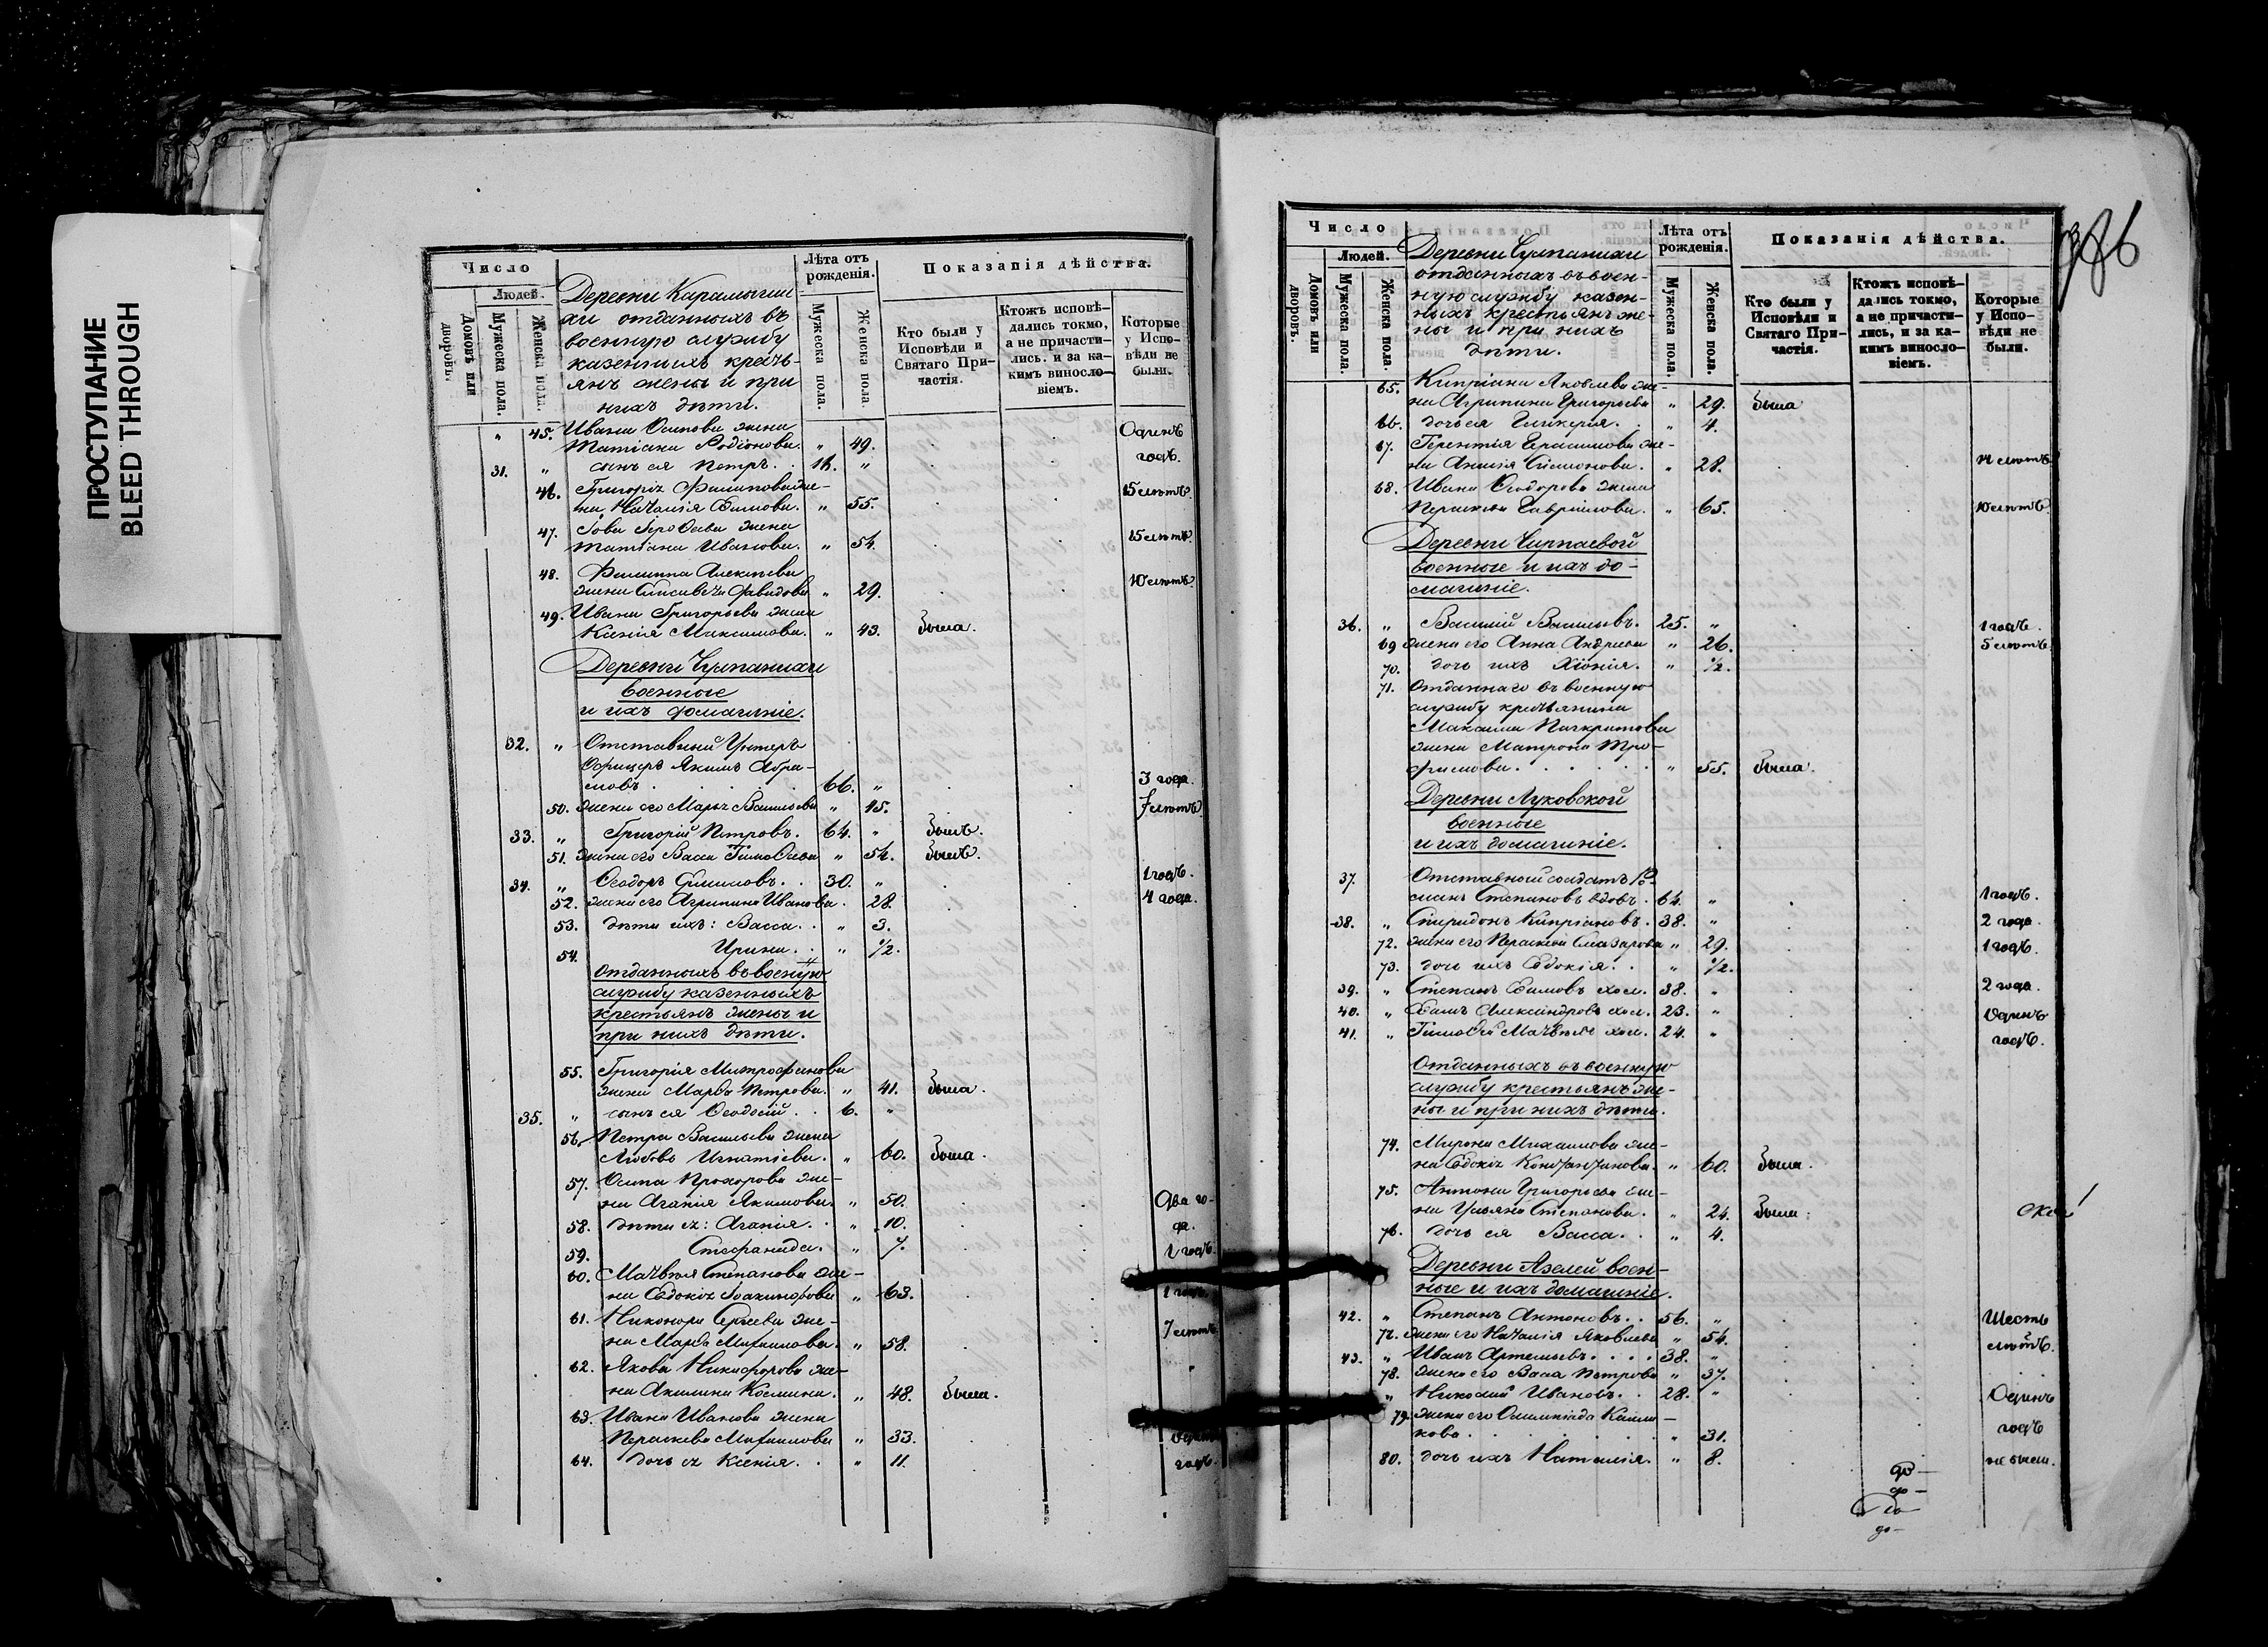 ПРОСТУПАНИЕ
BLEED THROUGH
Число
Людей.
Домовъ или дворовъ.
Мужеска пола.
Женска пола.
Деревни Карамыши
хи отданныхъ въ
военную службу
казенныхъ кресть-
янъ жены и при
нихъ дѣти.
Лѣта отъ рожденія.
Мужеска пола.
Женска пола.
Показанія дѣйства.
Кто были у Исповѣди и Святаго Причастія.
Ктожъ исповѣ-дались токмо, а не причасти-лись. и за ка-кимъ винословіемъ.
Которые у Испо-вѣди не были.
" 45. Ивана Осипова жена Одинъ
Татіана Родіонова. " 49. годъ.
31. " сынъ ея Петръ. 16. "
46. Григорія Филипова же- 15 лѣтъ.
на Наталія Ефимова. " 55.
47. Іова Ерофеева жена
Татіана Иванова. " 54. 15 лѣтъ.
48. Филиппа Алексѣева
жена Елисавета Давидова " 29. 10 лѣтъ.
49. Ивана Григорьева жена
Ксенія Максимова. " 43. Была.
Деревни Чупанихи
военные
и ихъ домашніе.
32. " Отставный Унтеръ
Офицеръ Якимъ Абра-
мовъ 66. " 3 года.
50. жена его Марѳа Васильева " 45. 7 лѣтъ
33. " Григорій Петровъ. 64. " Былъ.
51. жена его Васса Тимоѳеева " 54. Былъ.
34. " Ѳеодоръ Симиновъ. 30. " 1 годъ.
52. жена его Агрипина Иванова. 28. 4 года.
53. дѣти ихъ: Васса. " 3.
54. Ирина. " 1/2.
Отданныхъ въ военную
службу казенныхъ
крестьянъ жены и
при нихъ дѣти.
55. Григорія Митрофанова
жена Марѳа Петрова. " 41. Была.
35. " сынъ ея Ѳеодосій 6. "
56. Петра Васильева жена
Любовь Игнатіева. " 60. Была.
57. Осипа Прохорова же-
на Агапія Якимова. " 50. Два го-
58. дѣти ея: Агапія. " 10. да.
59. Стефанида. " 7. 1 годъ.
60. Матвѣя Степанова же-
на Евдокія Іоакинфова " 63. 1 годъ.
61. Никонора Сергѣева же-
на Марѳа Михаилова. " 58. 7 лѣтъ.
62. Якова Никифорова же-
на Акилина Космина. " 48. Была.
63. Ивана Иванова жена
Пераскева Михаилова " 33. Одинъ
64. дочь ея Ксенія. " 11. годъ.
Число
Людей.
Домовъ или дворовъ.
Мужеска пола.
Женска пола.
Деревни Чупанихи
отданныхъ въ воен-
ную службу казен-
ныхъ крестьянъ же-
ны и при нихъ
дѣти.
Лѣта отъ рожденія.
Мужеска пола.
Женска пола.
Показанія дѣйства.
Кто были у Исповѣди и Святаго При-частія.
Ктожъ исповѣ-дались токмо, а не причасти-лись, и за ка-кимъ виносло-віемъ.
Которые у Испо-вѣди не были.
65. Кипріана Яковлева же-
на Агрипина Григорьева " 29. Была
66. дочь ея Гликерія. " 4.
67. Терентія Герасимова же-
на Анисія Симонова. " 28. 4 лѣтъ.
68. Ивана Ѳеодорова жена
Пераскева Гавріилова. " 65. 10 лѣтъ.
Деревни Чирпаевой
военные и ихъ до-
машніе.
36. " Василій Васильевъ. 25. " 1 годъ.
69 жена его Анна Андреева " 26. 5 лѣтъ.
70. дочь ихъ Хіонія. " 1/2.
71. Отданнаго въ военную
службу крестьянина
Максима Панкратова
жена Матрона Тро-
фимова. " 55. Была.
Деревни Луковской
военные
и ихъ домашніе.
37. Отставный солдатъ Ро-
манъ Степановъ вдовъ. 64. " 1 годъ.
38. " Спиридонъ Кипріановъ. 38. " 2 года.
72. жена его Пераскева Елазарова " 29. 1 годъ.
73. дочь ихъ Евдокія. " 1/2.
39. " Степанъ Ефимовъ хол. 38. " 2 года.
40. " Ефимъ Александровъ хол. 23. " Одинъ
41. " Тимоѳей Матвѣевъ хол. 24. " годъ.
Отданныхъ въ военную
службу крестьянъ же-
ны и при нихъ дѣти.
74. Мирона Михаилова же-
на Евдокія Константинова. " 60. Была.
75. Антона Григорьева же-
на Ульяна Степанова. " 24. Была.
76. дочь ея Васса. " 4.
Деревни Азелей воен-
ные и ихъ домашніе.
42. " Степанъ Антоновъ. 56. " Шесть
77. жена его Наталія Яковлева " 54. лѣтъ.
43. " Иванъ Артемьевъ. 38. "
78. жена его Васса Петрова " 37.
" Николай Ивановъ. 28. " Одинъ
79. жена его Олимпіада Клим-
кова. " 31. годъ
80. дочь ихъ Наталія. " 8. не были.